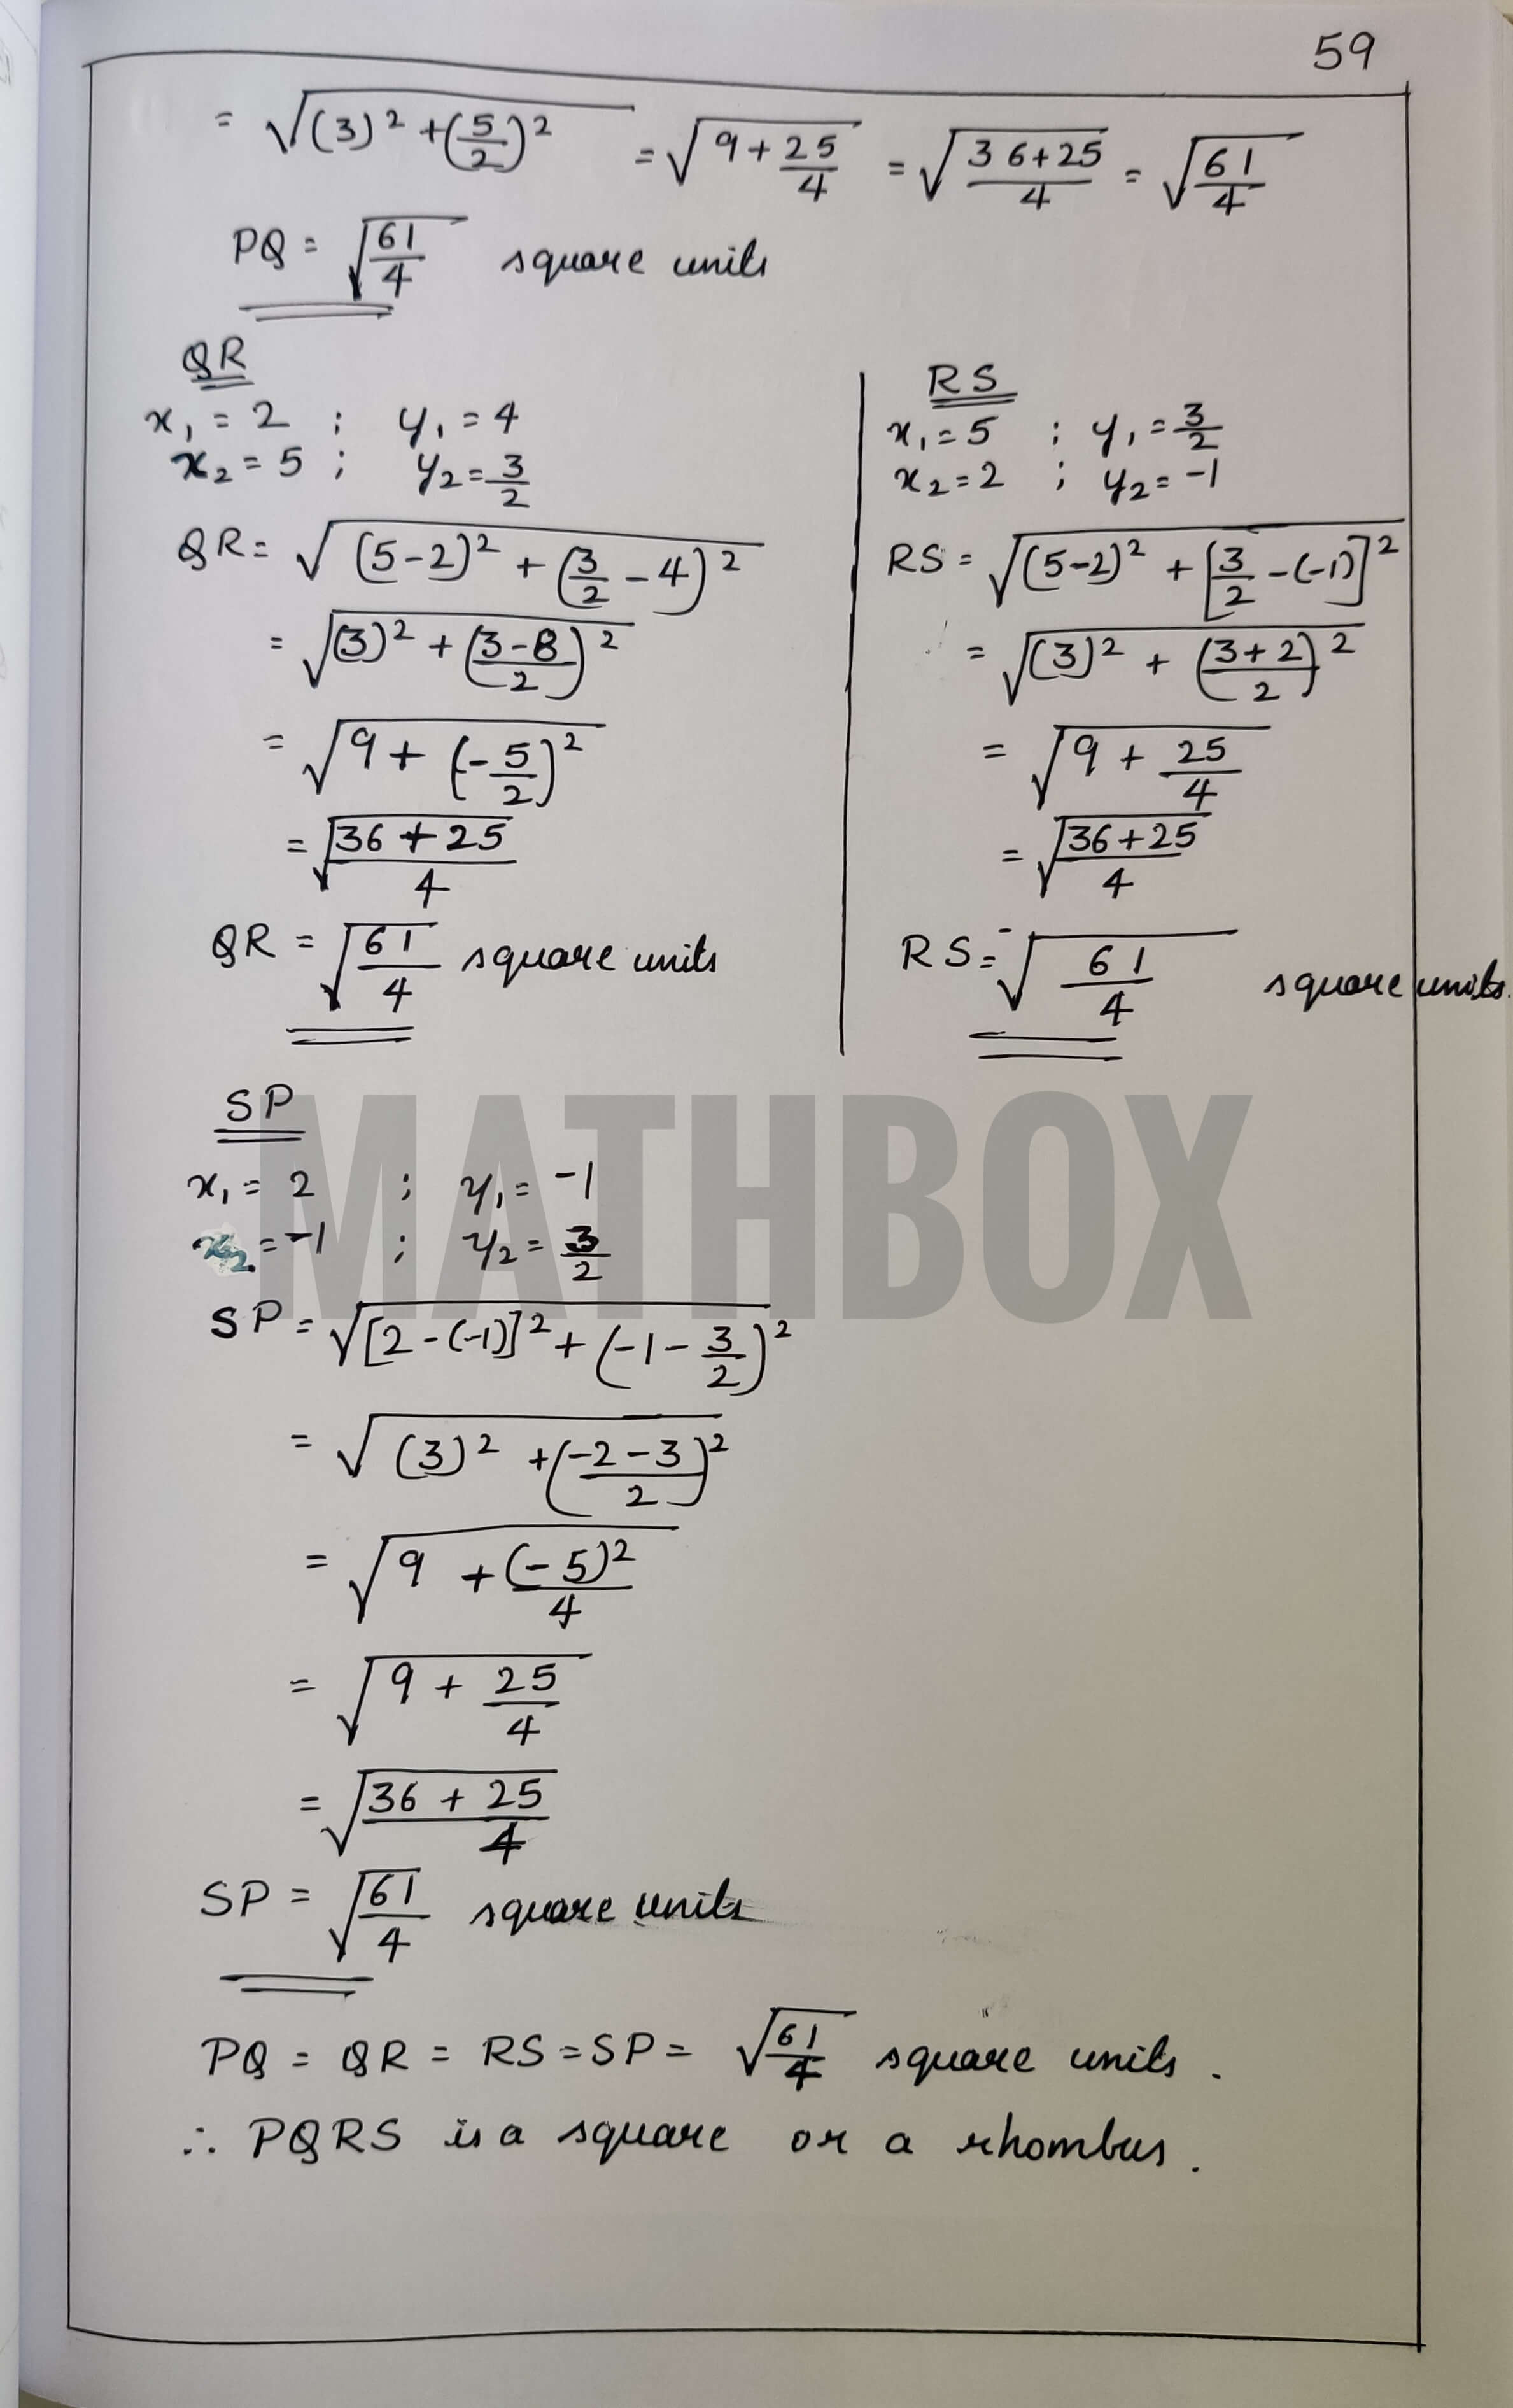 59
= √((3)² + (5/2)²) = √(9 + 25/4) = √((36+25)/4) = √(61/4)
PQ = √(61/4) square units
QR
x₁ = 2 ; y₁ = 4
x₂ = 5 ; y₂ = 3/2
QR = √((5-2)² + (3/2 - 4)²)
= √((3)² + ((3-8)/2)²)
= √(9 + (-5/2)²)
= √((36 + 25)/4)
QR = √(61/4) square units
RS
x₁ = 5 ; y₁ = 3/2
x₂ = 2 ; y₂ = -1
RS = √((5-2)² + [3/2 - (-1)]²)
= √((3)² + ((3+2)/2)²)
= √(9 + 25/4)
= √((36+25)/4)
RS = √(61/4) square units.
SP
x₁ = 2 ; y₁ = -1
x₂ = -1 ; y₂ = 3/2
SP = √([2-(-1)]² + (-1 - 3/2)²)
= √((3)² + ((-2-3)/2)²)
= √(9 + (-5)²/4)
= √(9 + 25/4)
= √((36 + 25)/4)
SP = √(61/4) square units
PQ = QR = RS = SP = √(61/4) square units.
∴ PQRS is a square or a rhombus.
MATHBOX